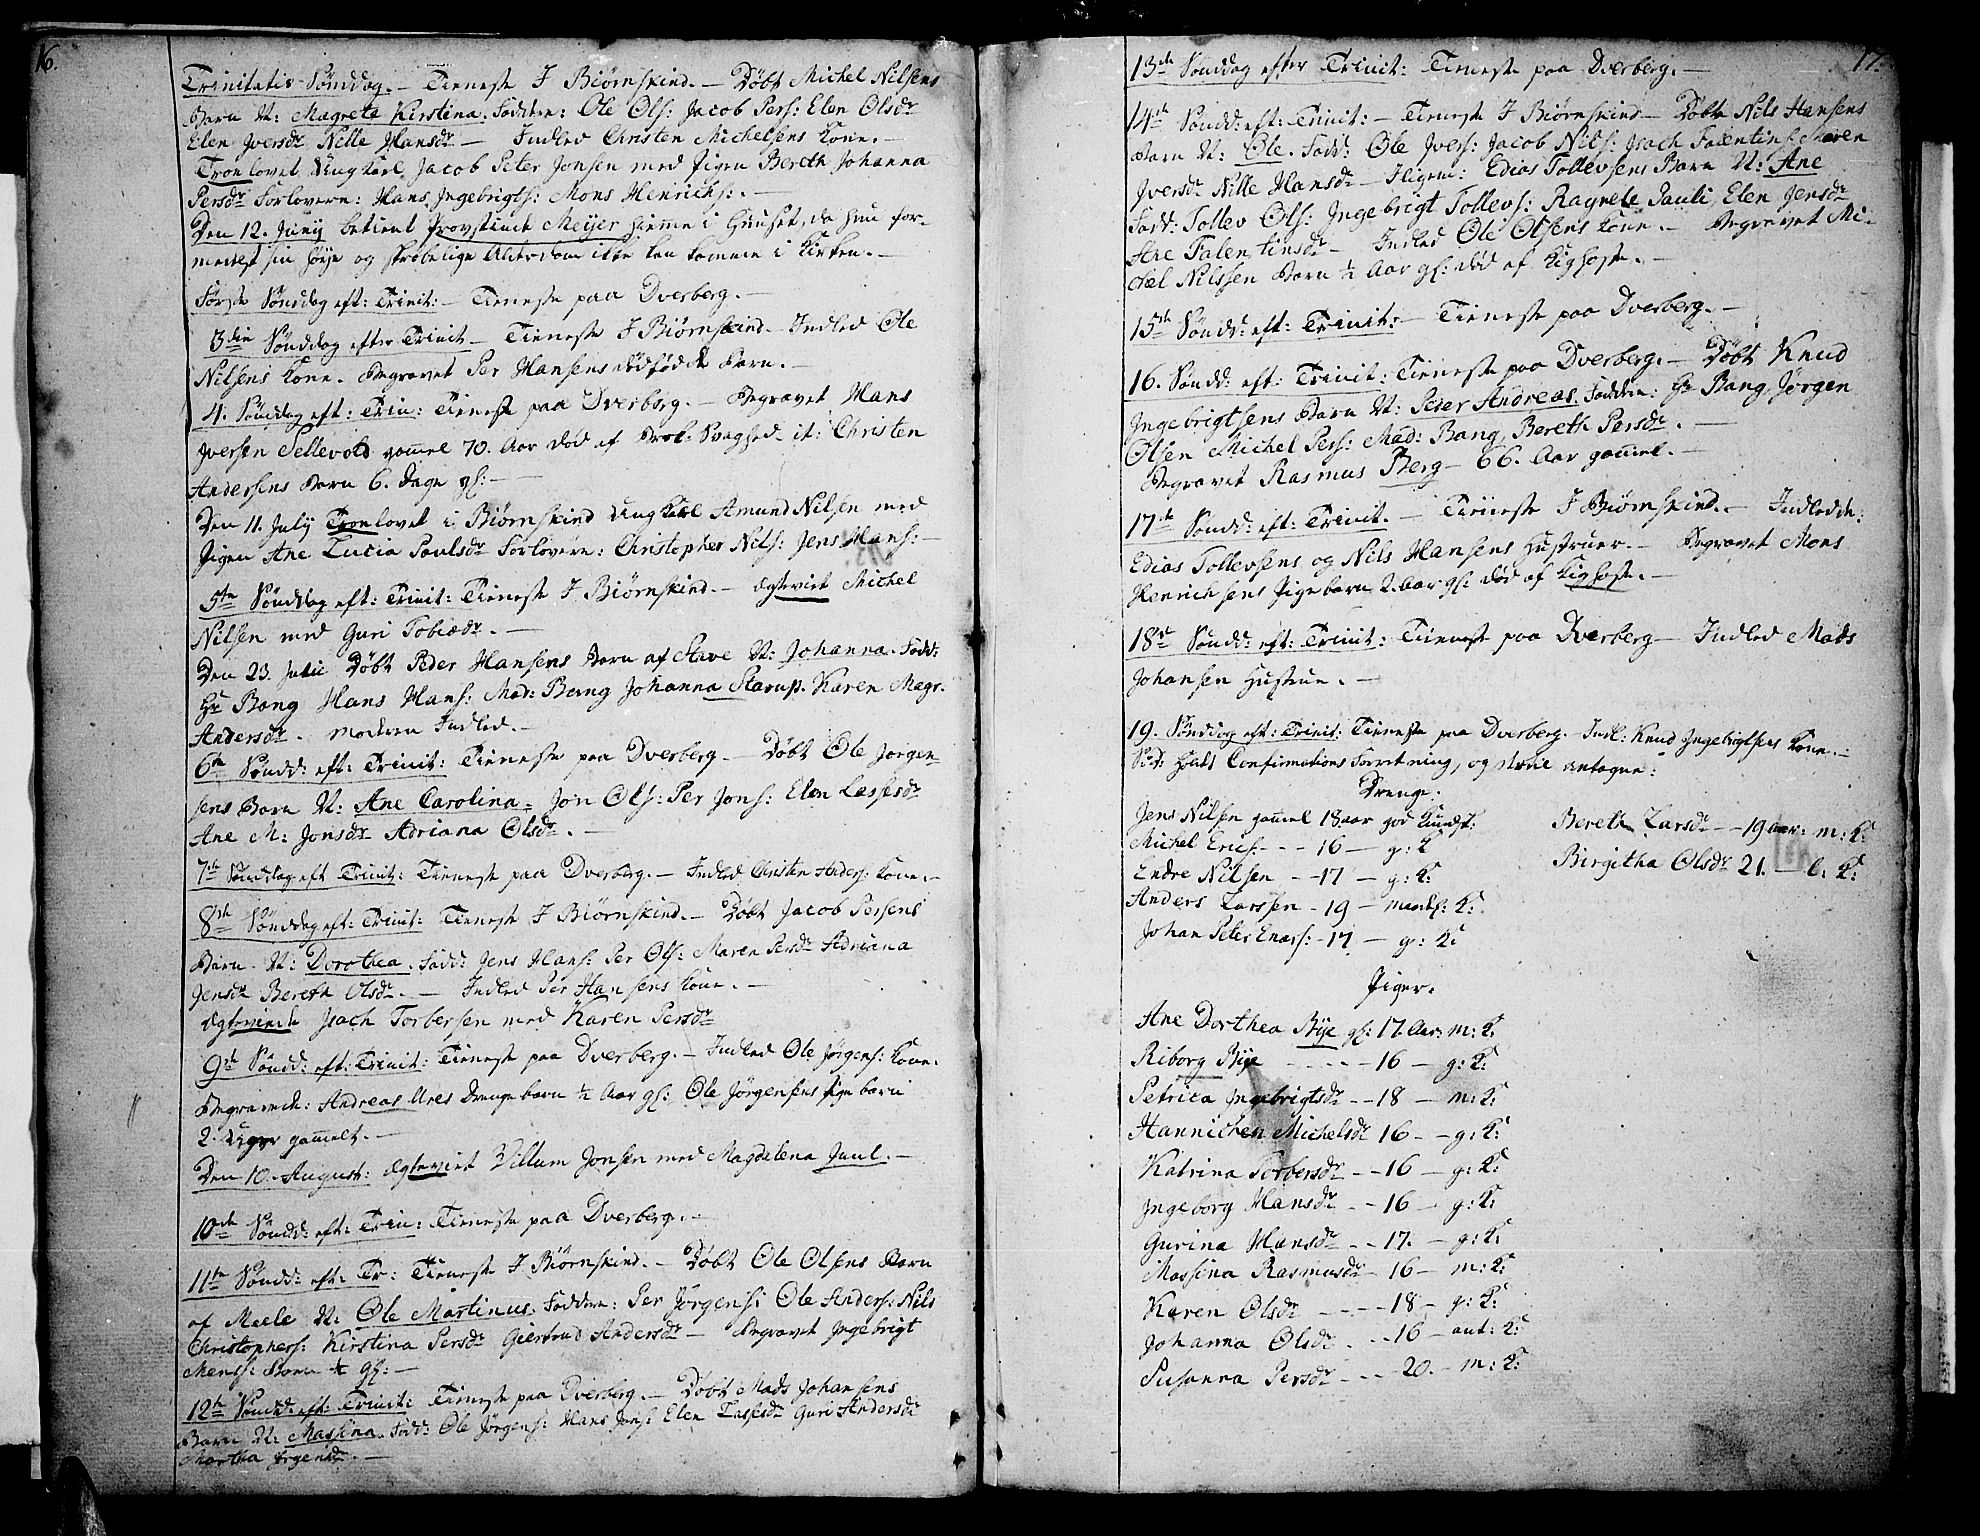 16.
Trinitatis Sønddag. - Tieneste I Biørnskind. - Døbt Michel Nilsens
Barn N: Magrete Kirstina. Faddere: Ole Ols: Jacob Pers: Elen Olsdr
Elen Iversdr Nille Hansdr - Indled Christen Michelsens Kone. -
Trolovet Ung Karl Jacob Peter Jonsen med Pigen Bereth Johanna
Persdr Forlovere: Hans Ingebrigts: Mons Henrichs: -
Den 12. Junij betient Provstinde Meijer hiemme i Huuset, da hun for-
medelst sin høje og skrøbelige Alderdom ikke kan komme i Kirken. -
Første Sønddag eft: Trinit: - Tieneste paa Dverberg. -
3die Sønddag efter Trinit - Tieneste I Biørnskind - Indled Ole
Nilsens Kone. Begravet Per Hansens dødfødde Barn. -
4. Sønddag eft: Trin: Tieneste paa Dverberg. - Begravet Hans
Iversen Sellevold gamel 70. Aar død af Svaghed it: Christen
Andersens Barn 6. Dage gl: -
Den 11. Julij Trolovet i Biørnskind Ung Karl Amund Nilsen med
Pigen Ane Lucia Paulsdr Forlovere: Christopher Nils: Jens Hans: -
5te Sønddag eft: Trinit: Tieneste I Biørnskind - Ægteviet Michel
Nilsen med Guri Tobiædr. -
Den 23. Julii Døbt Peder Hansens Barn af Stave N: Johanna. Fadd:
Hr Bang Hans Hans: Mad: Bang Johanna Starup. Karen Magr.
Andersdr. Moderen Indled. -
6te Søndd: eft: Trinit: Tieneste paa Dverberg - Døbt Ole Jorgen-
sens Barn N: Ane Carolina. Jon Ols: Per Jons: Elen Lassesdr
Ane M: Jonsdr Adriana Olsdr. -
7de Sønddag eft Trinit: Tieneste paa Dverberg. - Indled Christen Anders: Kone. -
8de Sønddag eft: Trinit: Tieneste I Biørnskind. - Døbt Jacob Persens
Barn. N: Dorothea. Fadd: Jens Hans: Per Ols: Maren Persdr Adriana
Jensdr Bereth Olsdr. - Indled Per Hansens Kone. -
Ægteviede Isach Torbersen med Karen Persdr
9de Søndd: eft: Trinit: Tieneste paa Dverberg. - Indled Ole Jørgens: Kone.
Begravede: Andreas Ures Drengebarn ½ Aar gl: Ole Jørgensens Pigebarn
2. Uger gammelt. -
Den 10. August: Ægteviet Villum Jonsen med Magdalena Juul. -
10de Søndd: eft: Trin: Tieneste paa Dverberg. -
11te Søndd: eft: Tr: Tieneste I Biørnskind. - Døbt Ole Olsens Barn
af Meele N: Ole Martinus. Faddere: Per Jørgens: Ole Anders: Nils
Christophers: Kirstina Persdr Giertrud Andersdr - Begravet Ingebrigt
Monss: Barn gl: -
12te Søndd: eft: Trinit: Tieneste paa Dverberg. - Døbt Mads Johansens
Barn N: Massina. Fadd: Ole Jørgens: Hans Jons: Elen Lassesdr Guri Andersdr
Martha Ørgensdr. -
17.
13de Sønddag efter Trinit: Tieneste paa Dverberg. -
14de Søndd: eft: Trinit: - Tieneste I Biørnskind - Døbt Nils Hansens
Barn N: Ole. Fadd: Ole Ivers: Jacob Nils: Isach Falentins: Maren
Iversdr Nille Hansdr - Iligem: Edias Tollevsens Barn N: Ane
Fadd: Tollev Ols: Ingebrigt Tollevs: Ragnele Pauli, Elen Jensdr
Ane Falentinsdr - Indled Ole Olsens Kone. - Begravet Mi-
chel Nilssen Barn ½ Aar gl: død af Kighoste. -
15de Søndd: eft: Trinit: - Tieneste paa Dverberg. -
16. Søndd: eft: Trinit: Tieneste paa Dverberg. - Døbt Knud
Ingebrigtsens Barn N: Peder Andreas. Faddere: Hr Bang, Jørgen
Olsen Michel Pers: Mad: Bang, Bereth Persdr. -
Begravet Rasmus Berg - 66. Aar gammel. -
17de Søndd: eft: Trinit. - Tieneste I Biørnskind. - Indledde:
Edias Tollevsens og Nils Hansens Hustruer. - Begravet Mons
Henrichsens Pigebarn 2. Aar gl: død af Kighoste. -
18de Søndd: eft: Trinit: Tieneste paa Dverberg - Indled Mads
Johansen Hustrue. -
19. Sønddag eft: Trinit: Tieneste paa Dverberg. Indl: Knud Ingebrigtsens Kone. -
S: D: holdt Confirmations Forretning, og bleve antagne:
Drenge:
Jens Nilsen gammel 18 aar god Kundsk:
Michel Erics: - - - 16 - g: K
Endre Nilsen - - 17 - g: K:
Anders Larssen - 19 - maadl: K:
Johan Peter Enars: - 17 - g: K:
Bereth Larsdr - - 19 aar: m: K:
Birgitha Olsdr 21. - l: K:
Piger.
Ane Dorthea Bye gl: 17. Aar: m: K:
Riborg Bye - - - - - 16 - g: K:
Petrica Ingebrigtsdr - - 18 - m: K:
Hannichen Michelsdr 16 - - g: K:
Katrina Torbersdr - - 16 - g: K:
Ingeborg Hansdr - - 16 - g: K:
Gurina Hansdr - - 17. - g: K:
Massina Rasmusdr - 16 - m: K:
Karen Olsdr - - - - 18 - g: K:
Johanna Olsdr - - - 16 - ant: K:
Susanna Persdr - - - 20. - m: K: